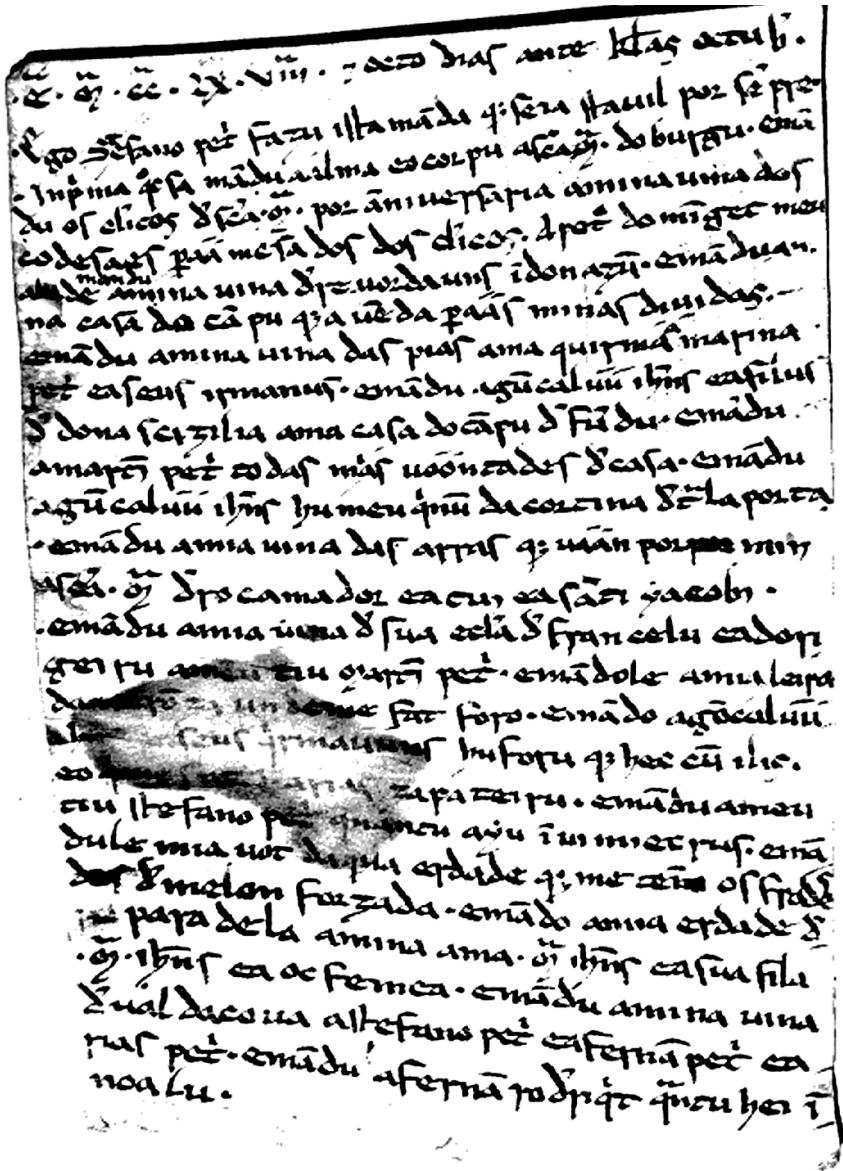 ·Eª·Mª·CCª·LX·VIIIª· 7 octo dias ante kl̄as octub̄.
·Ego Stefano pet̄ fazu ista mãda q̄ sera stavil por sēpre·
·Inp̄ma q̄sa mãdu a alma eo corpu a sc̄a m̄a· do burgu· emã
du os cl̄icos d̄ sc̄a·m̄a· por aniversaria amina vina dos
codesaes p̄a a mesa dos dos cl̄icos. A pet̄ domīget meu
mandu
amina vina d̄
na casa do cãpu q̄ a vēda p̄a as minas dividas.
emãdu amina vina das pias ama quirmãa marina
pet̄ easeus irmanus· emãdu agūcalvū ih̄ns easfilius
d̄ dona sertilia ama casa docãpu d̄ fūdu· emãdu
amartī pet̄ todas mãs voontades d̄casa· emãdu
agūcalvū ih̄ns hu meu q̄nū dacortina d̄t̄la porta
·emãdu amia vina das arras q̄ vaan por min
asc̄a· m̄a d̄rocamador eacui ea sãti yacobi·
·emãdu amia vina d̄ sua ecl̄a d̄ francelu eadori
geiru ameu tiu martī pet̄· emãdole amia leira
fat foro· emãdo agōcalvū
seus hu foru q̄ hec cū ilis.
zapateiru· emãdu ameu
tiu stefano pet̄ quantu ayu ī vimieirus· emã
dule mia vot daqua erdade q̄ me tem os frades
d̄ melon forzada· emãdo amia erdade d̄
paradela amina ama· m̄a ih̄ns easua fila
·m̄a· ih̄ns ea ocfemea· emãdu amina vina
d̄ val dacova astefano pet̄ eafernã pet̄ ea
rias pet̄· emãdu afernã rod̄rigt̄ q̄ntu hei ī
noalu·